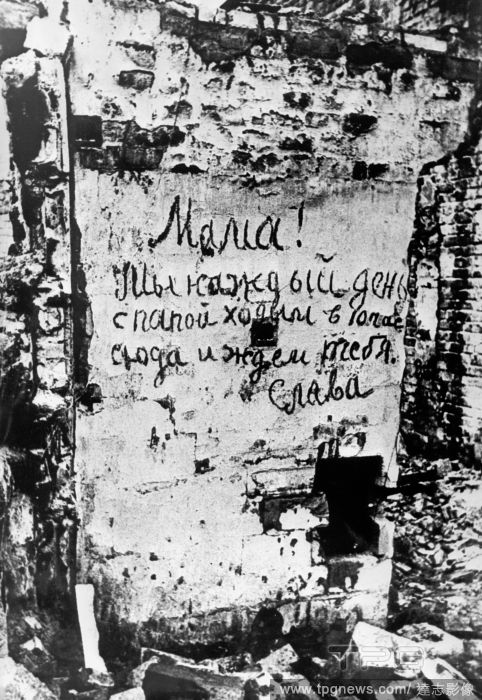 Мама!
Мы каждый день
с папой ходим в 10 час
сюда и ждем тебя.
Слава
TPG
www.tpgnews.com / 達志影像